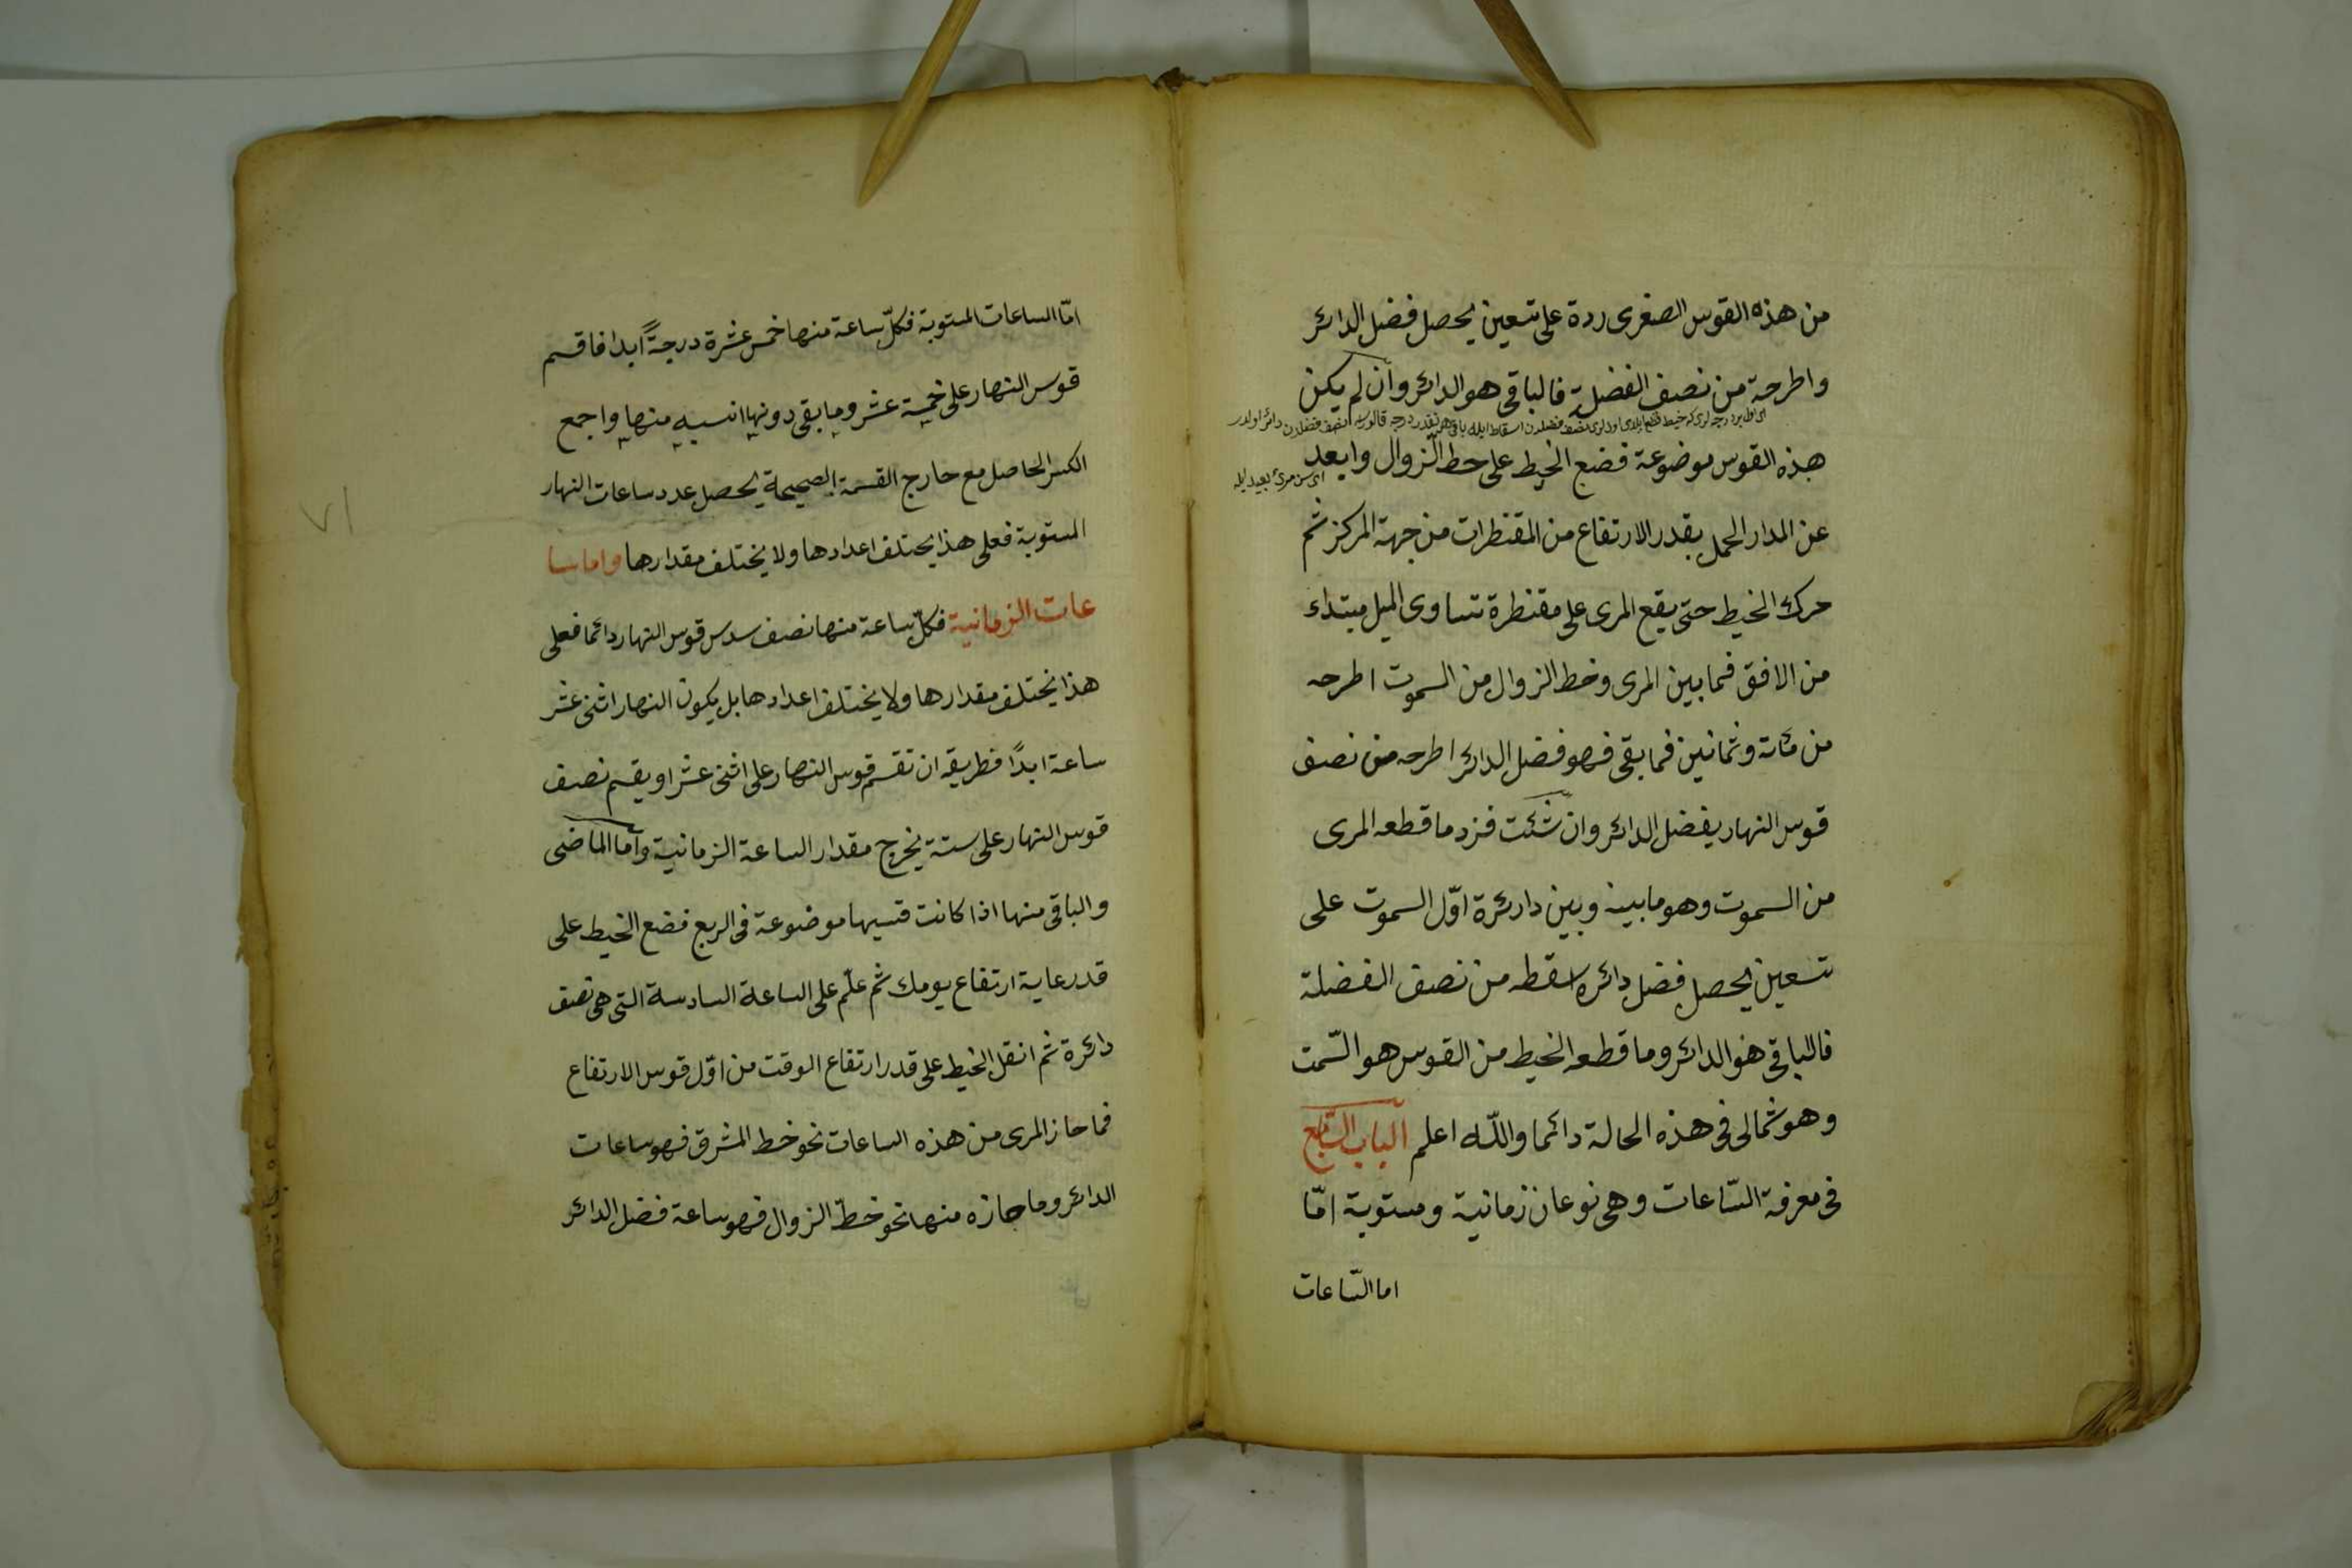 من هذه القوس الصغرى ردة على تسعين يحصل فضل الدائر
واطرحة من نصف الفضلة فالباقى هو الدائر وان لم يكن
هذه القوس موضوعة فضع الخيط على خط الزوال وابعد
عن المدار الحمل بقدر الارتفاع من المقنطرات من جهة المركز ثم
حرك الخيط حتى يقع المرى على مقنطرة تساوى الميل مبتداء
من الافق فما بين المرى وخط الزوال من السموت اطرحه
من مائة وثمانين فما بقى فهو فضل الدائر اطرحه من نصف
قوس النهار يفضل الدائر وان شئت فزد ما قطعه المرى
من السموت وهو ما بينه وبين دائرة اوّل السموت على
تسعين يحصل فضل دائره اسقطه من نصف الفضلة
فالباقى هو الدائر وما قطعه الخيط من القوس هو السّمت
وهو شمالى فى هذه الحالة دائما واللّه اعلم الباب السّابع
فى معرفة السّاعات وهى نوعان زمانية ومستوية امّا
اما السّاعات
امّا الساعات المستوية فكلّ ساعة منها خمس عشرة درجةً ابدا فاقسم
قوس النهار على خمسة عشر وما بقى دونها انسبه منها واجمع
الكسر الحاصل مع خارج القسمة الصحيحة يحصل عدد ساعات النهار
المستوية فعلى هذا يختلف اعدادها ولا يختلف مقدارها واما سا
عات الزمانية فكلّ ساعة منها نصف سدس قوس النهار دائما فعلى
هذا يختلف مقدارها ولا يختلف اعدادها بل يكون النهار اثنى عشر
ساعة ابدًا فطريقه ان تقسم قوس النهار على اثنى عشر او يقسم نصف
قوس النهار على ستة يخرج مقدار الساعة الزمانية وأما الماضى
والباقى منها اذا كانت قسيها موضوعة فى الربع فضع الخيط على
قدر غاية ارتفاع يومك ثم علّم على الساعة السادسة التى هى نصف
دائرة ثم انقل الخيط على قدر ارتفاع الوقت من اوّل قوس الارتفاع
فما حاز المرى من هذه الساعات نحو خط المشرق فهو ساعات
الدائر وما جازه منها نحو خطّ الزوال فهو ساعة فضل الدائر
٧١